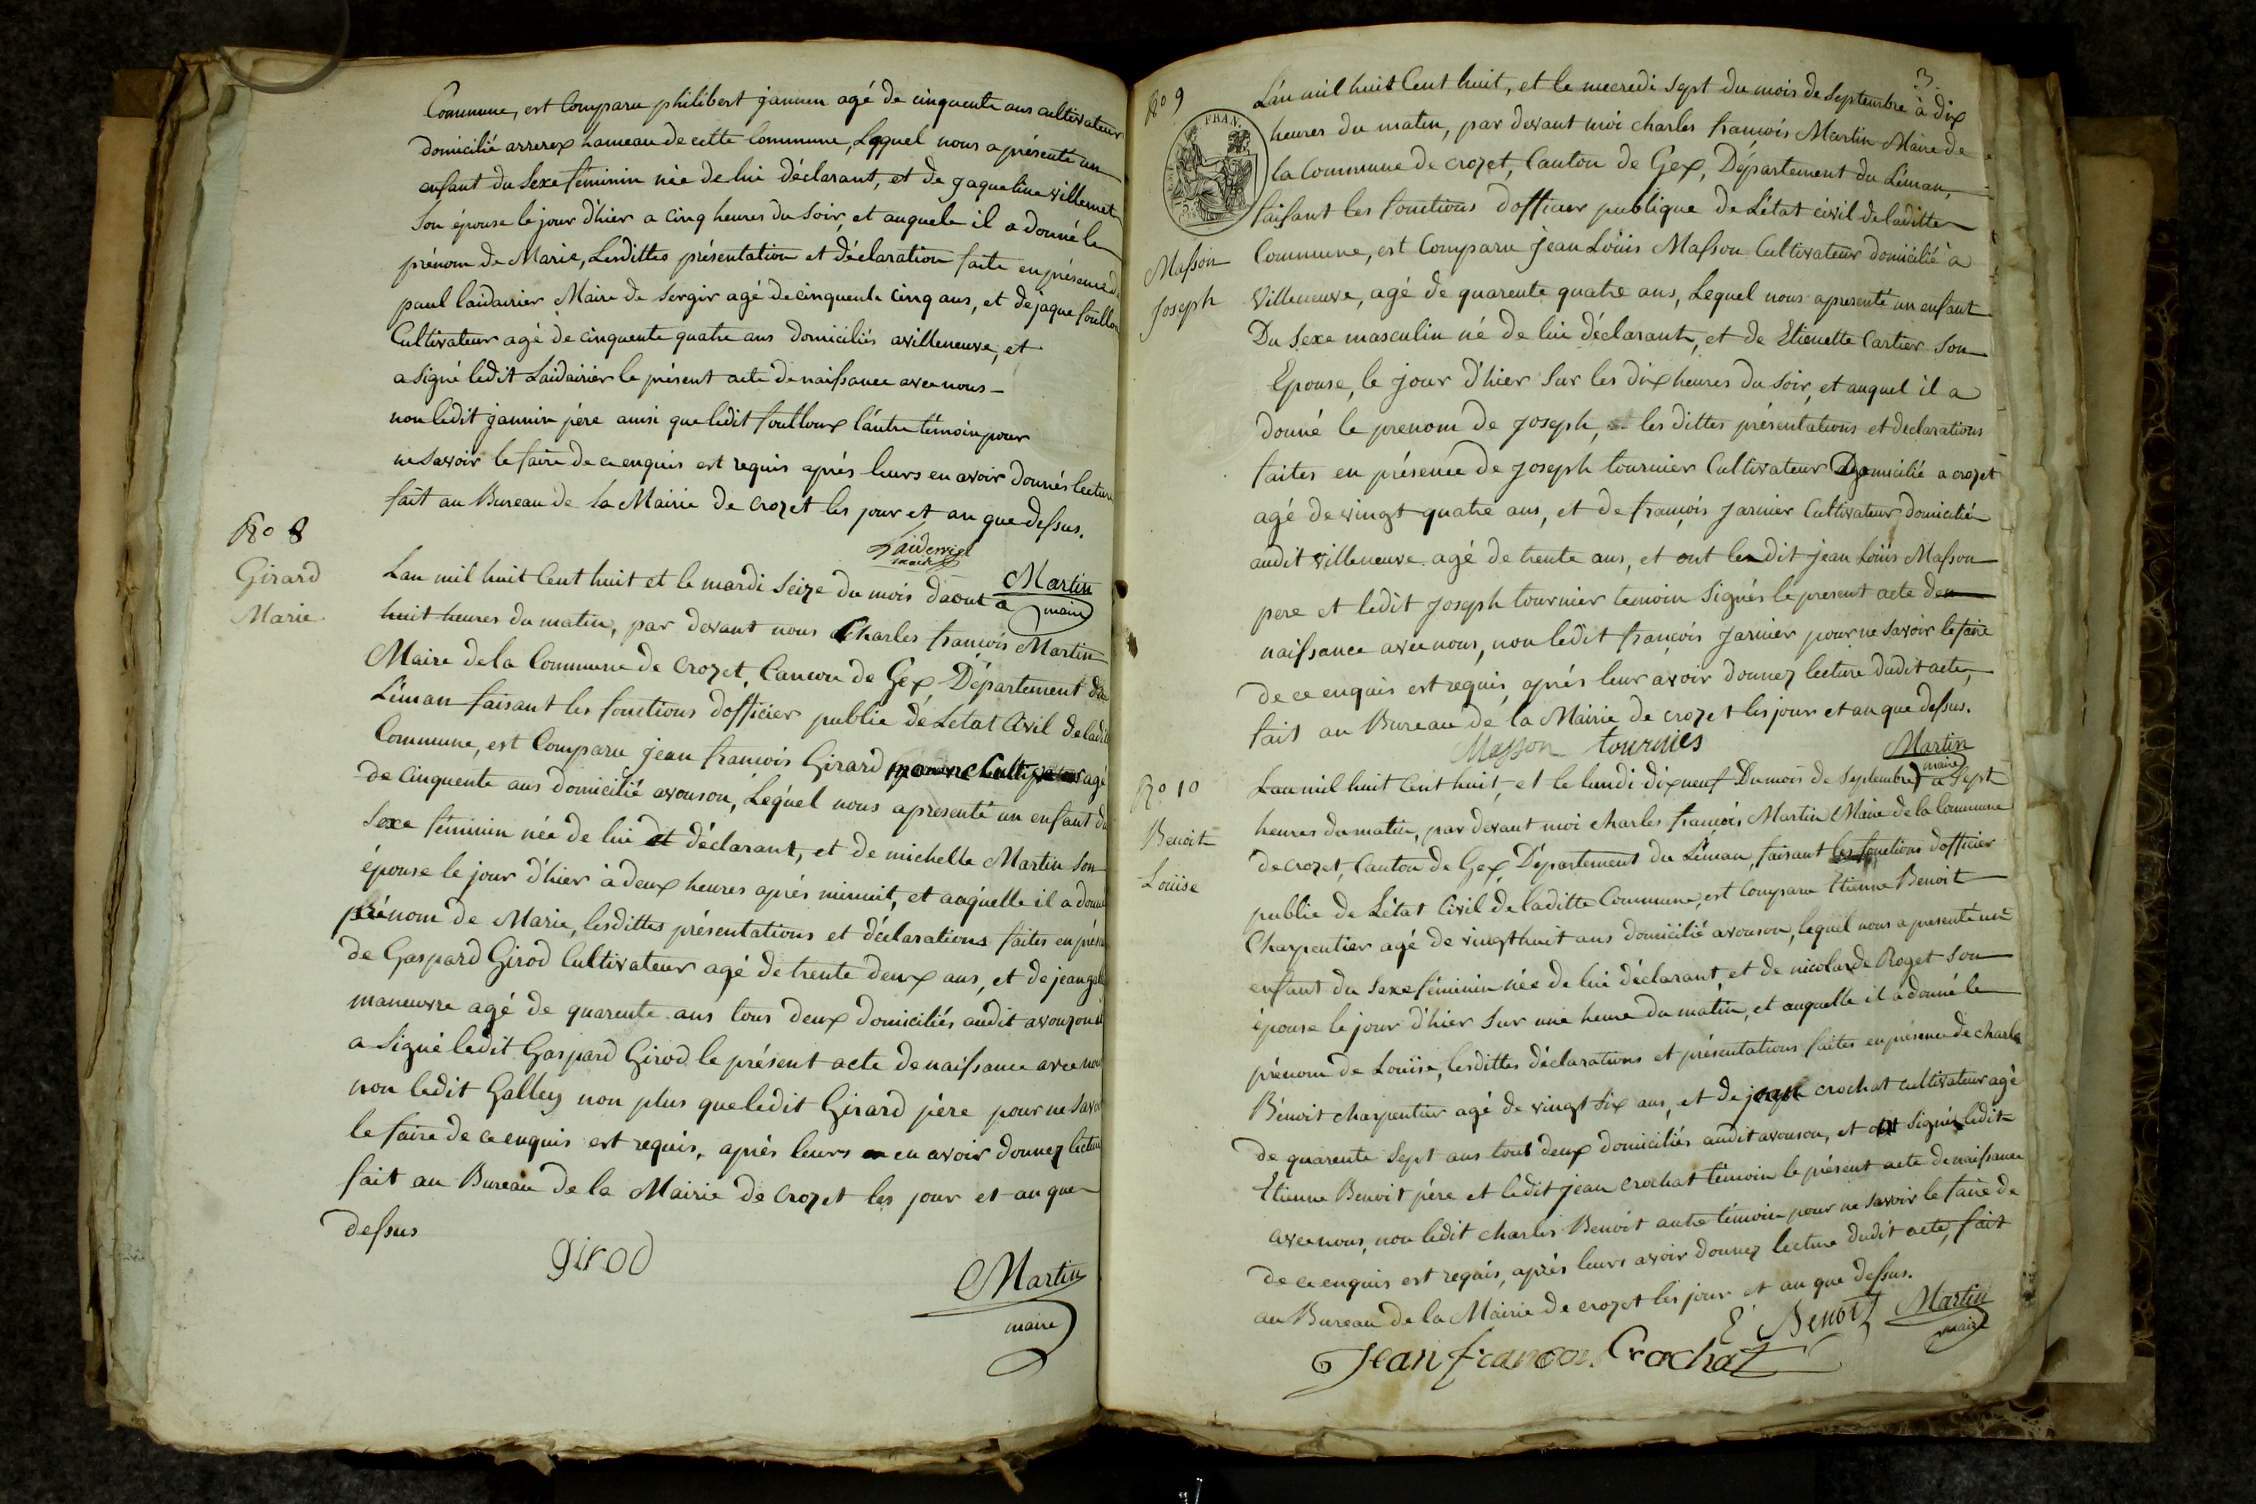 Commune, est Comparu philibert janinn agé de cinquente ans cultivateur
domicilié arrerex hameau de cette Commune, Lequel nous a présenté un
enfant du Sexe féminin née de lui déclarant, et de jaqueline villemet
Son épouse le jour d'hier a cinq heures du Soir, et auquele il a donné le
prénom de Marie, Lesdittes présentation et déclaration faite en présence de
paul laidairier Maire de Sergir agé de cinquente cinq ans, et de jaque foulloux
Cultivateur agé de cinquente quatre ans domiciliés avilleneuve, et
a signé ledit Laidairier le présent acte de naissance avec nous
non ledit jannin père ainsi que ledit foulloux l'autre témoin pour
ne Savoir le faire de ce enquis est requis aprés leurs en avoir donnés lecture
fait au Bureau de la Mairie de Crozet les jour et an que dessus.
Laiderrier
maire
Martin
maire
No 8
Girard
Marie
Lan mil huit Cent huit et le mardi Seize du mois d'aout a
huit heures du matin, par devant nous Charles françois Martin
Maire de la Commune de Crozet, Canton de Gex, Département du
Léman faisant les fonctions d'officier public de Letat Civil de ladite
Commune, est Comparu jean françois Girard agé
de Cinquente ans domicilié avouson, Lequel nous apresenté un enfant du
Sexe féminin née de lui déclarant, et de michelle Martin Son
épouse le jour d'hier à deux heures aprés minuit, et auquelle il a donné
prénom de Marie, lesdittes présentations et déclarations faites en présence
de Gaspard Girod Cultivateur agé de trente deux ans, et de jean
maneuvre agé de quarente ans tous deux domiciliés audit avouzon et
a Signé ledit Gaspard Girod le présent acte de naissance avec nous
non ledit Galley non plus que ledit Girard père pour ne Savoir
le faire de ce enquis est requis, aprés leurs en avoir donnez lecture
fait au Bureau de la Mairie de Crozet les jour et an que
dessus
girod
Martin
maire
3.
No 9
FRAN.
Masson
Joseph
L'an mil huit Cent huit, et le mecredi Sept du mois de Septembre à dix
heures du matin, par devant moi charles françois Martin Maire de
la Commune de crozet, Canton de Gex, Département du Léman,
faisant les fonctions d'officier publique de L'état civil de laditte
Commune, est Comparu jean Loüis Masson Cultivateur domicilié à
Villeneuve, agé de quarente quatre ans, Lequel nous apresenté un enfant
Du Sexe masculin né de lui déclarant, et de Etienette Cartier Son
Epouse, le jour d'hier Sur les dix heures du Soir, et auquel il a
donné le prenom de Joseph, les dittes présentations et declarations
faites en présence de Joseph tournier Cultivateur Domicilié a crozet
agé de vingt quatre ans, et de françois Jarnier Cultivateur domicilié
audit villeneuve agé de trente ans, et ont ledit jean Loüis Masson
pere et ledit Joseph tournier temoin Signés le present acte de
naissance avec nous, non ledit françois Jarnier pour ne Savoir le faire
de ce enquis est requis, aprés leur avoir donnez lecture dudit acte,
fait au Bureau de la Mairie de crozet les jour et an que dessus.
Masson tournies
Martin
maire
No 10
Benoit
Loüise
Lan mil huit Cent huit, et le lundi dix neuf Du mois de Septembre a Sept
heures du matin, par devant moi charles françois Martin Maire de la Commune
de crozet, Canton de Gex, Département du Léman, faisant les fonctions d'officier
public de L'état Civil de laditte Commune, est Comparu Etienne Benoit
Charpentier agé de vingt huit ans domicilié avouson, lequel nous a presenté un
enfant du Sexe féminin née de lui déclarant, et de nicolarde Roget Son
épouse le jour d'hier Sur une heure du matin, et auquelle il a donné le
prénom de Loüise, lesdittes déclarations et présentations faites en présence de charle
Bénoit charpentier agé de vingt Six ans, et de jean crochat cultivateur agé
de quarente Sept ans tous deux domiciliés audit avouson, et ont signés ledit
Etienne Benoit père et ledit jean Crochat témoin le présent acte de naissance
avec nous, non ledit charles Benoit autre témoin pour ne Savoir le faire de
de ce enquis est requis, aprés leurs avoir donnez lecture dudit acte, fait
au Bureau de la Mairie de crozet les jour et an que dessus.
E Benoit Martin
maire
Jean francois Crochat